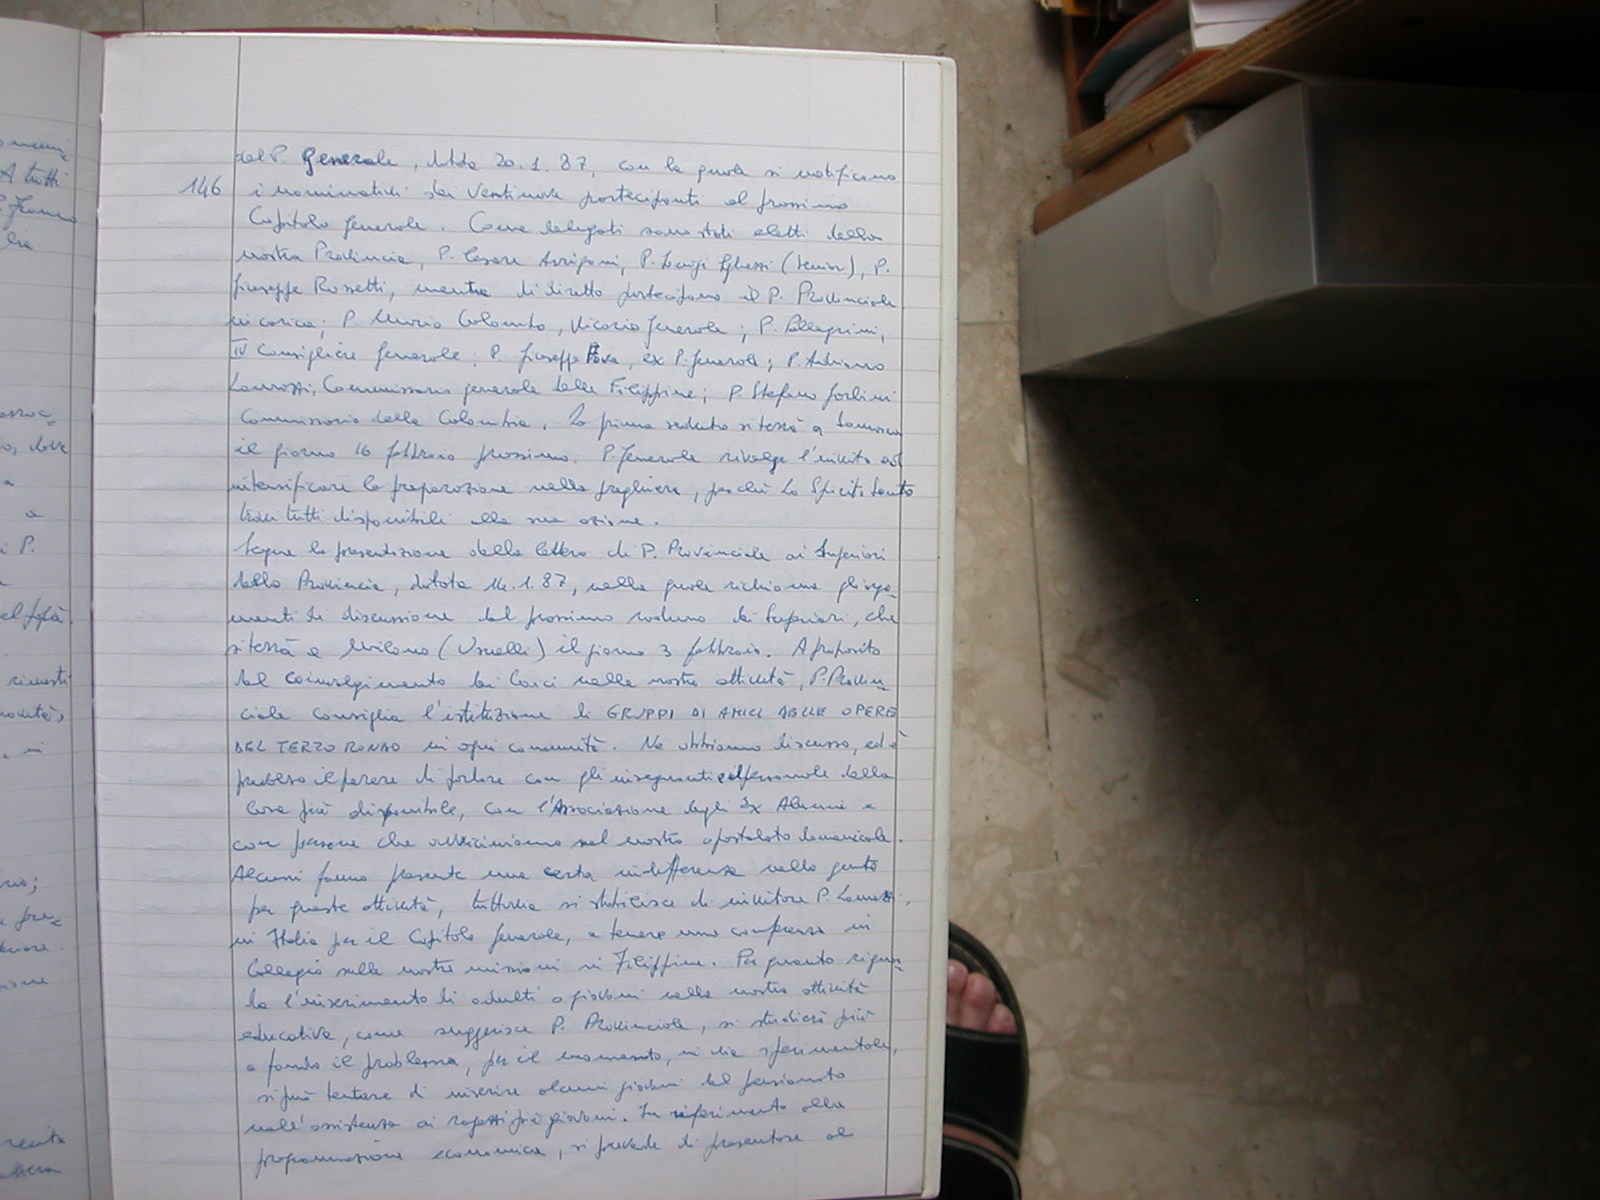 del P. Generale, data 20.1.87, con la quale si notificano
146 i nominativi dei ventinove partecipanti al prossimo
Capitolo generale. Come delegati sono stati eletti della
nostra Provincia, P. Cesare Arrigoni, P. Luigi Ghezzi (senior), P.
Giuseppe Rossetti, mentre di diritto partecipano il P. Provinciale
in carica; P. Mario Colombo, Vicario generale; P. Pellegrini,
IV Consigliere generale; P. Giuseppe Fava, ex P. generale; P. Adriano
Commissario generale delle Filippine; P. Stefano Gorlini
Commissario della Colombia. La prima seduta si terrà a Somasca
il giorno 16 febbraio prossimo. P. Generale rivolge l'invito ad
intensificare la preparazione nella preghiera, perché lo Spirito Santo
trovi tutti disponibili alla sua azione.
Segue la presentazione della lettera di P. Provinciale ai Superiori
della Provincia, datata 14.1.87, nella quale richiama gli argo-
menti di discussione del prossimo raduno dei Superiori, che
si terrà a Milano (Usuelli) il giorno 3 febbraio. A proposito
del coinvolgimento dei laici nelle nostre attività, P. Provin-
ciale consiglia l'istituzione di GRUPPI DI AMICI DELLE OPERE
DEL TERZO MONDO in ogni comunità. Ne abbiamo discusso, ed è
prevalso il parere di parlare con gli insegnanti e il personale della
Casa più disponibile, con l'Associazione degli Ex Alunni e
con persone che avviciniamo nel nostro apostolato domenicale.
Alcuni fanno presente una certa indifferenza nella gente
per queste attività, tuttavia si stabilisce di invitare P.
in Italia per il Capitolo generale, a tenere una conferenza in
Collegio sulle nostre missioni in Filippine. Per quanto riguar-
da l'inserimento di adulti o giovani nelle nostre attività
educative, come suggerisce P. Provinciale, si studierà più
a fondo il problema, per il momento, in via sperimentale,
si può tentare di inserire alcuni giovani del pensionato
nell'assistenza ai ragazzi più giovani. In riferimento alla
programmazione economica, si prevede di presentare al
A tutti
dove
a
a
P.
rimasti